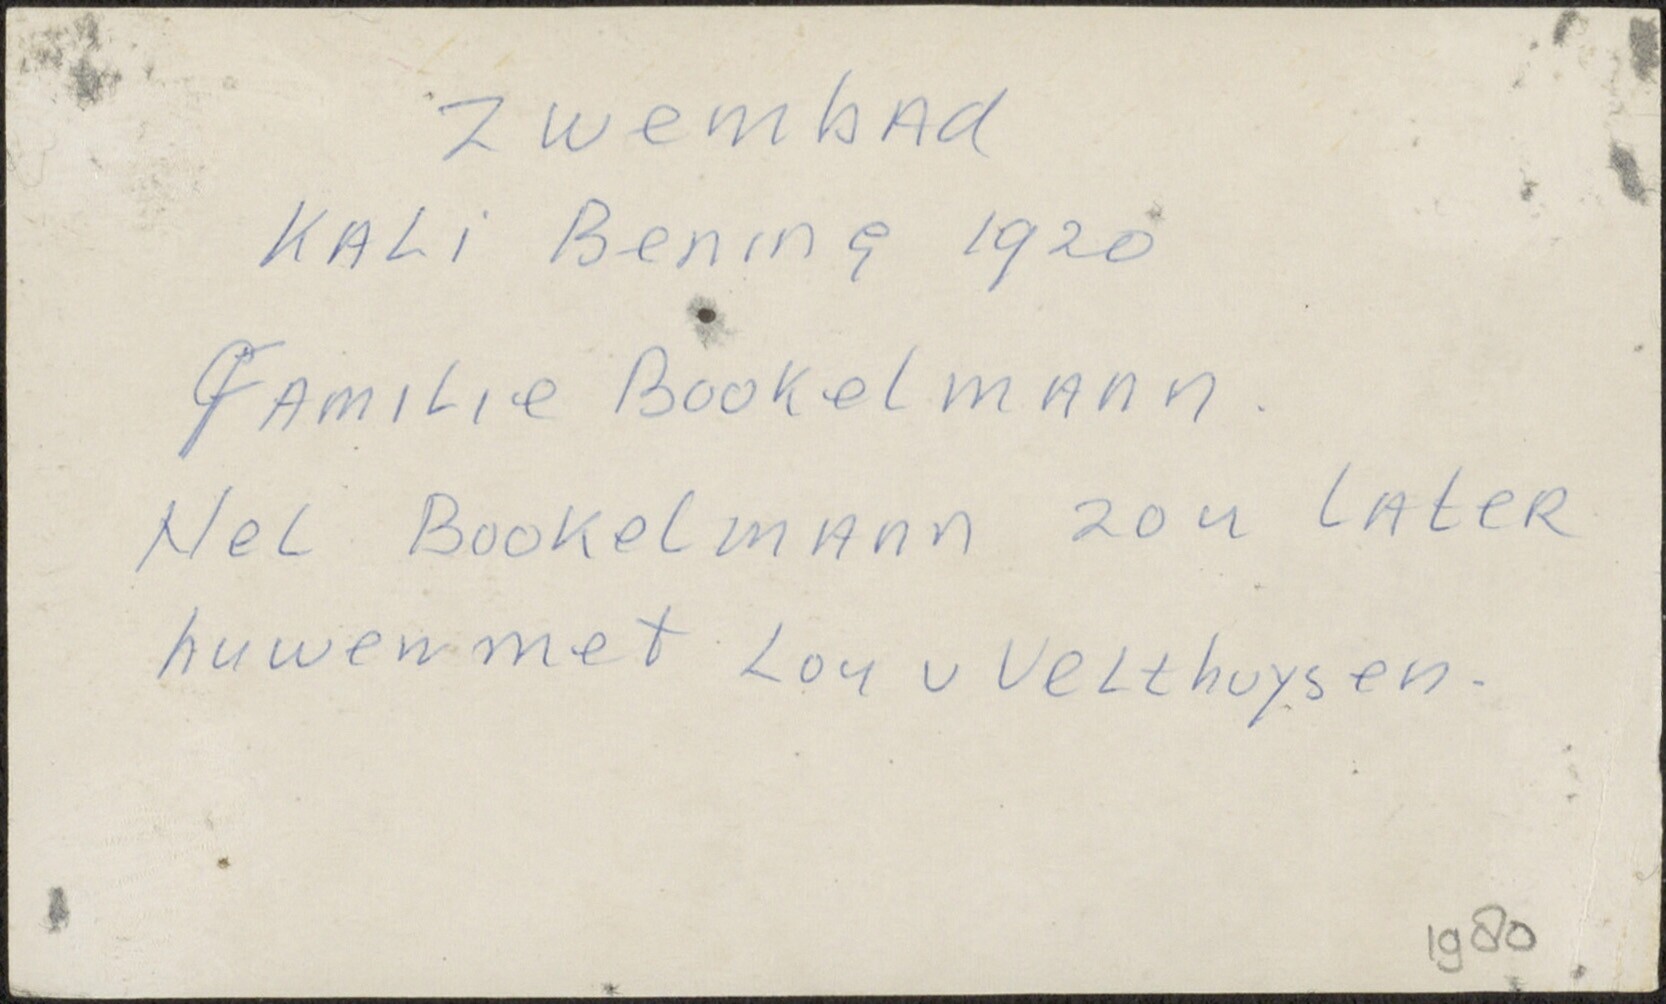 Zwembad
Kali Bening 1920
Familie Bookelmann.
Nel Bookelmann zou later
huwen met Lou v Velthuysen.
1980